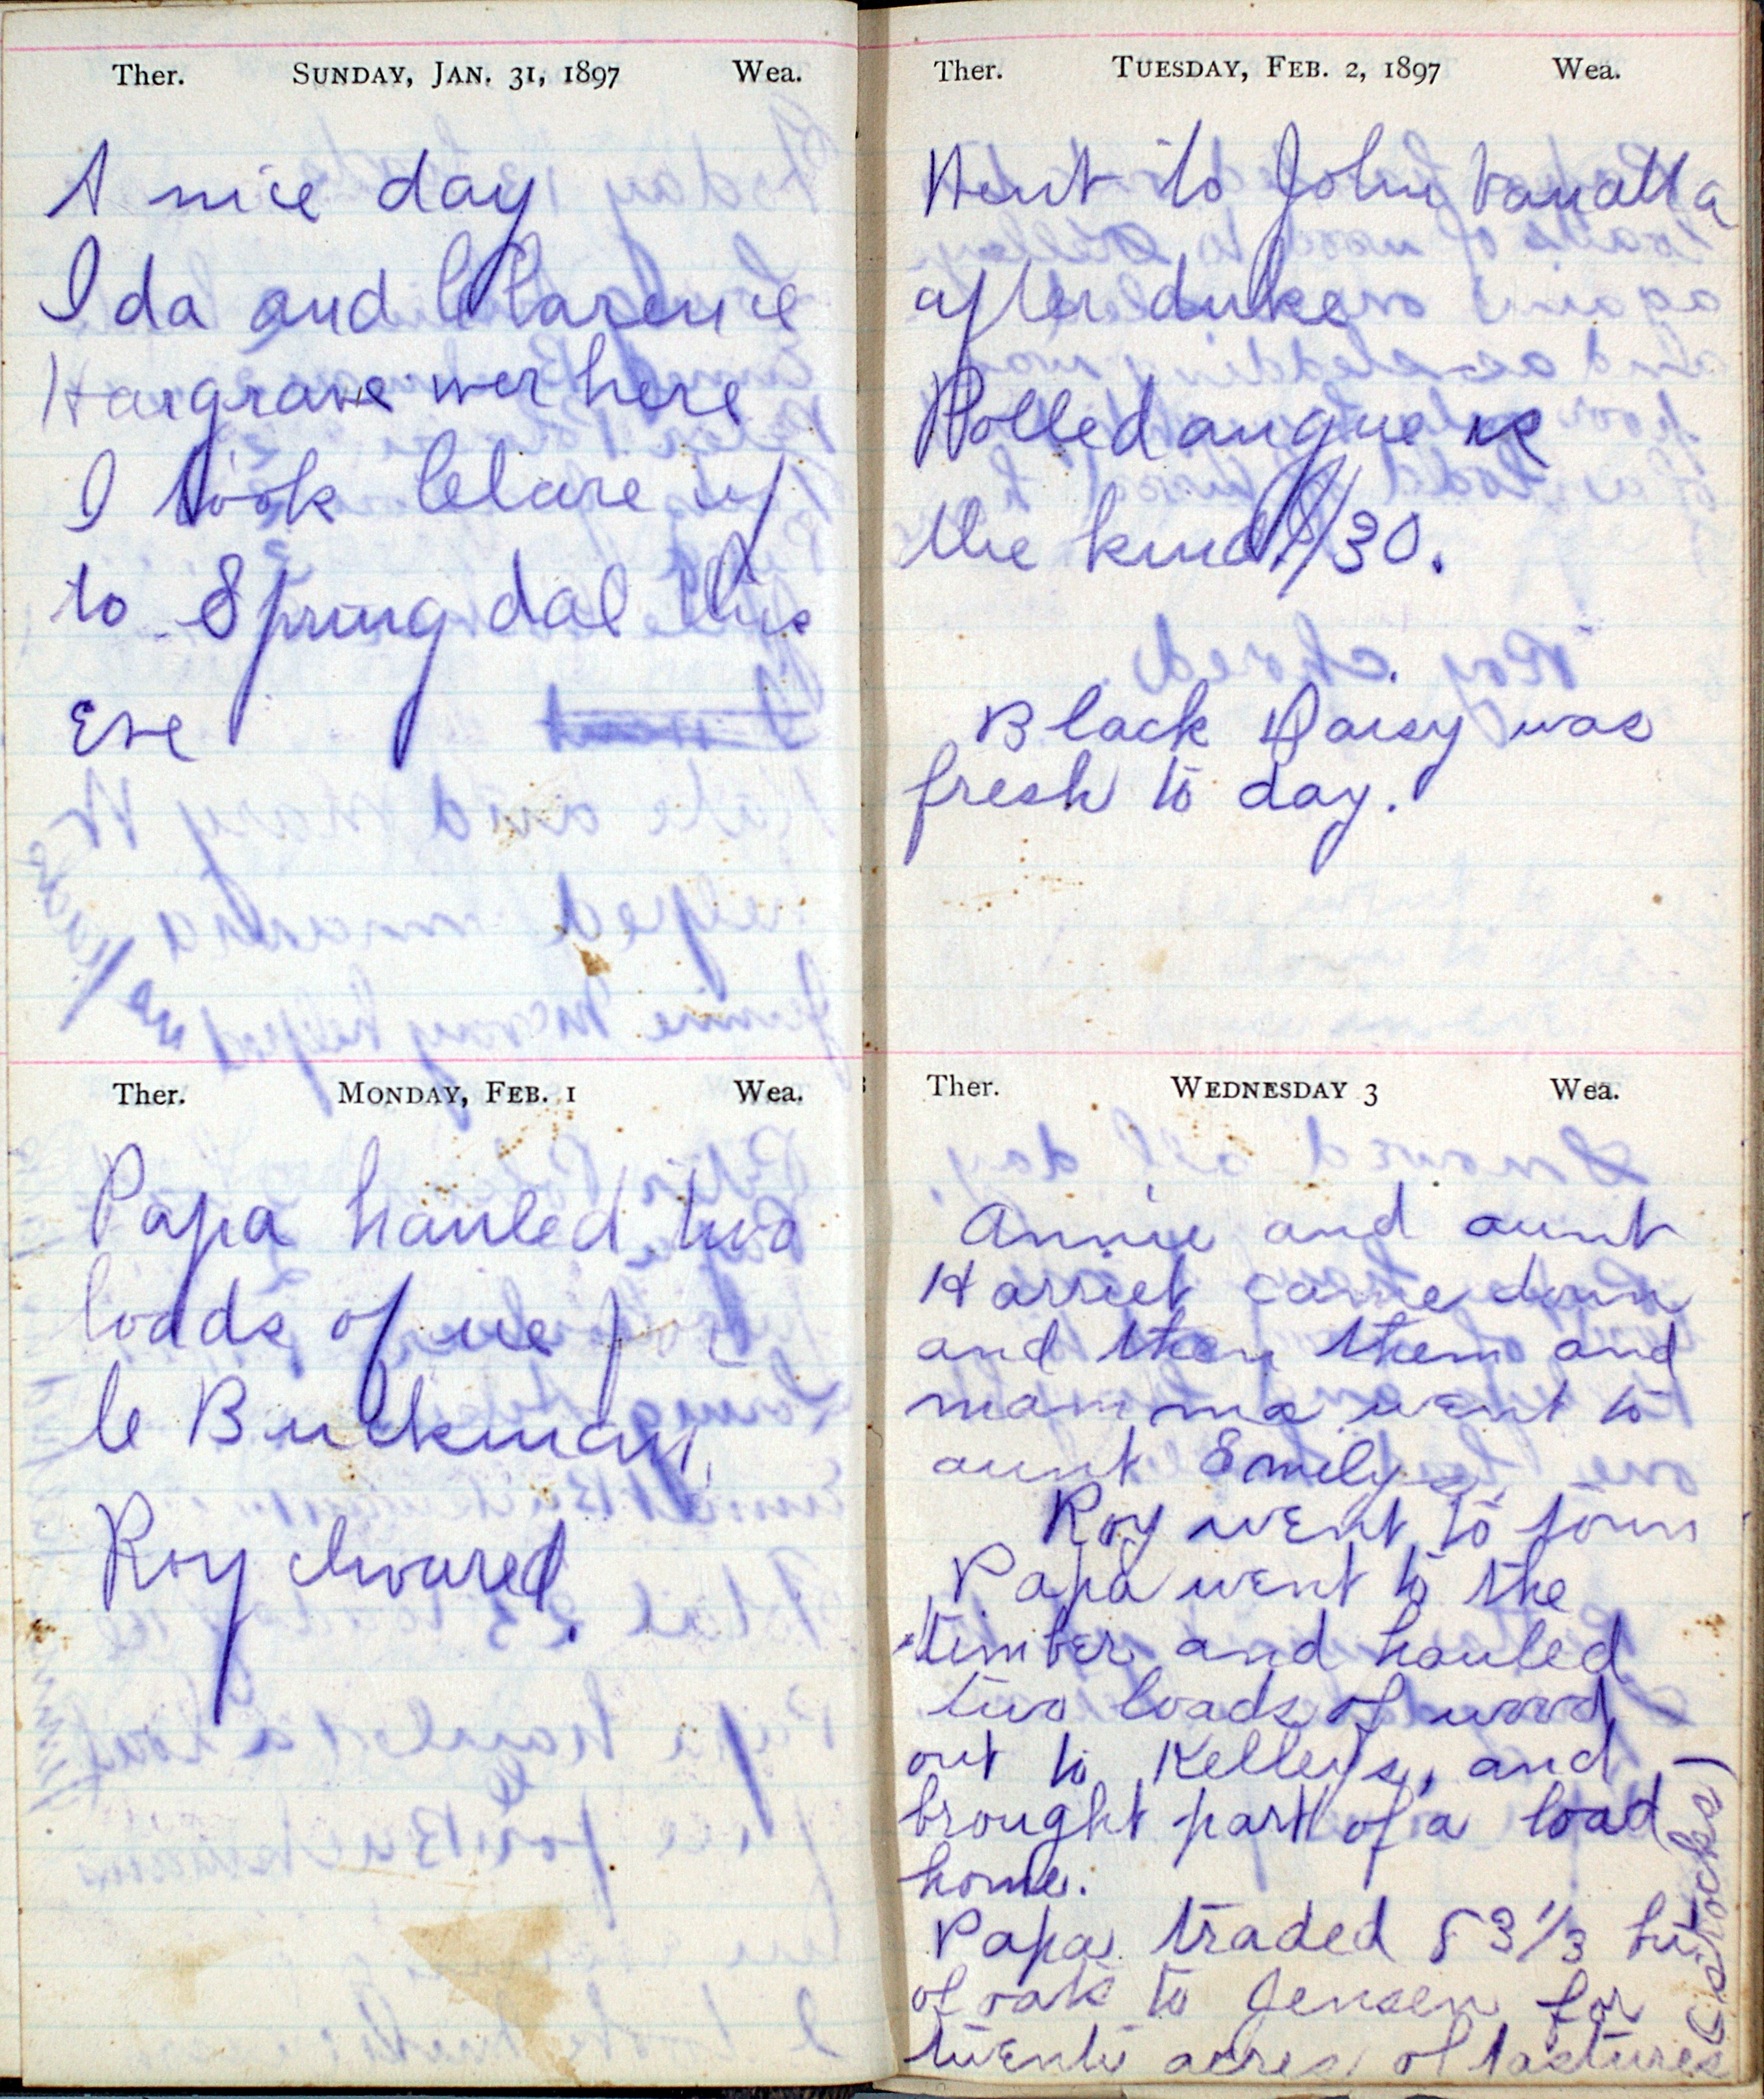 Ther. SUNDAY, JAN. 31, 1897 Wea.
A nice day
Ida and Clarence
Hargrave wer here
I took Clare up
to Spring dal this
Eve
Ther. MONDAY, FEB. 1 Wea.
Papa hauled two
loads of ice for
C Buckman,
Roy chored.
Ther. TUESDAY, FEB. 2, 1897 Wea.
Went to John Vanatta
after duke
Polled angue is
the kind. $130.
Black Daisy was
fresh to day.
Ther. WEDNESDAY 3 Wea.
Annie and aunt
Harriet came down
and then them and
mamma went to
aunt Emilys.
Roy went to town
Papa went to the
timber and hauled
two loads of wood
out to Kelleys, and
brought part of a load
home.
Papa traded 53 1/3 bu
of oats to Jensen for
twenty acres of pastures
(stocks)